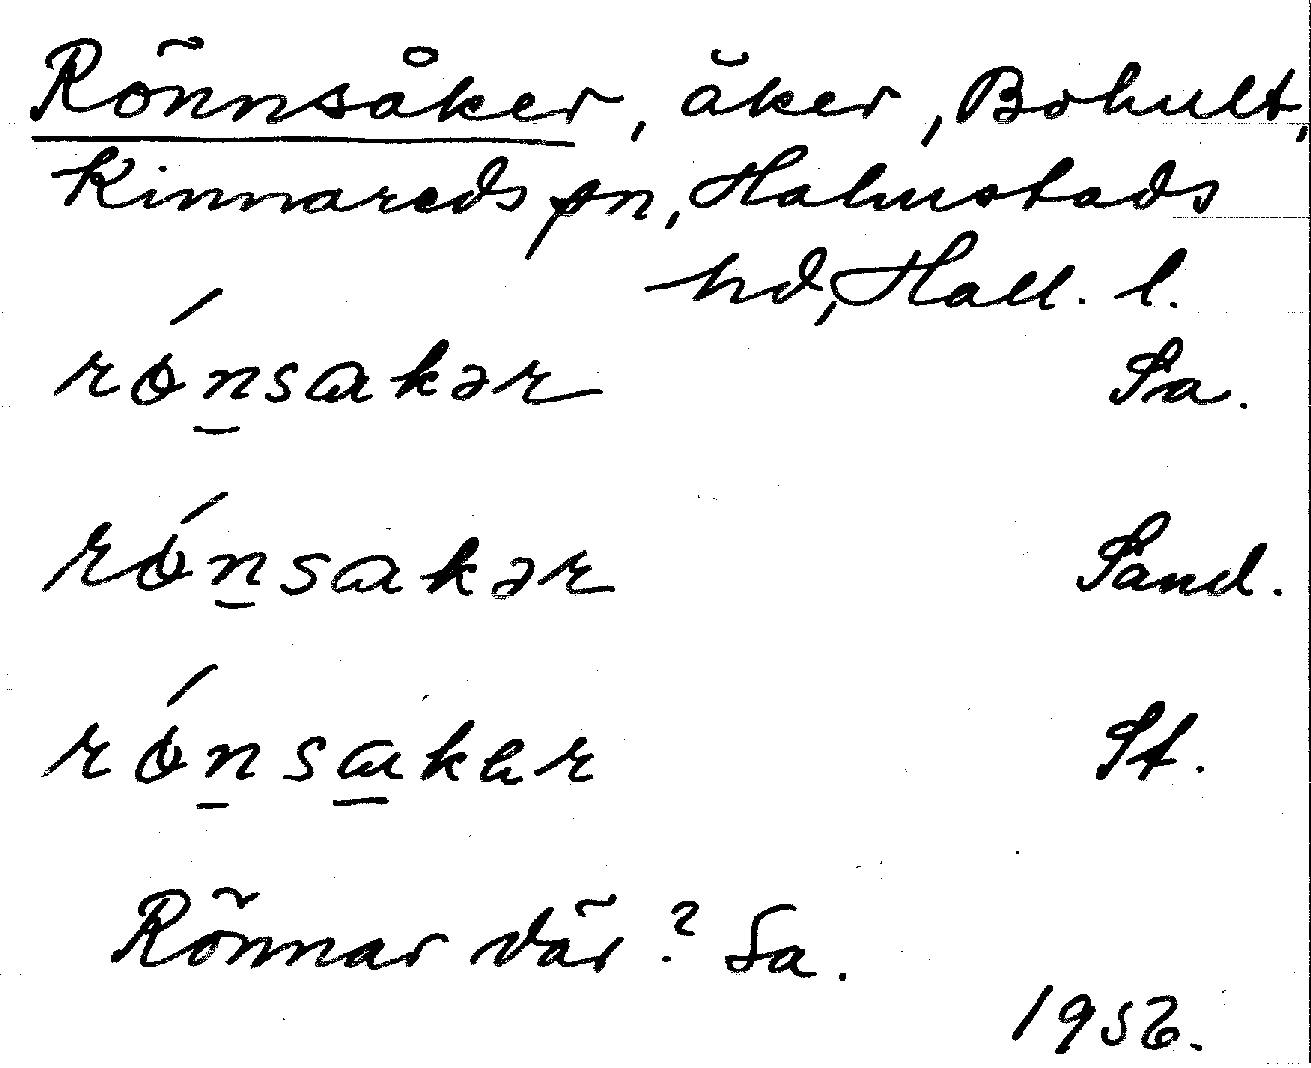 Rönnsåker, åker, Bohult,
Kinnareds sn, Halmstads
hd, Hall. l.
rǿn̲sakər Sa.
rǿn̲sakər Sand.
rǿn̲sa̲kar St.
Rönnar där? Sa.
1952.